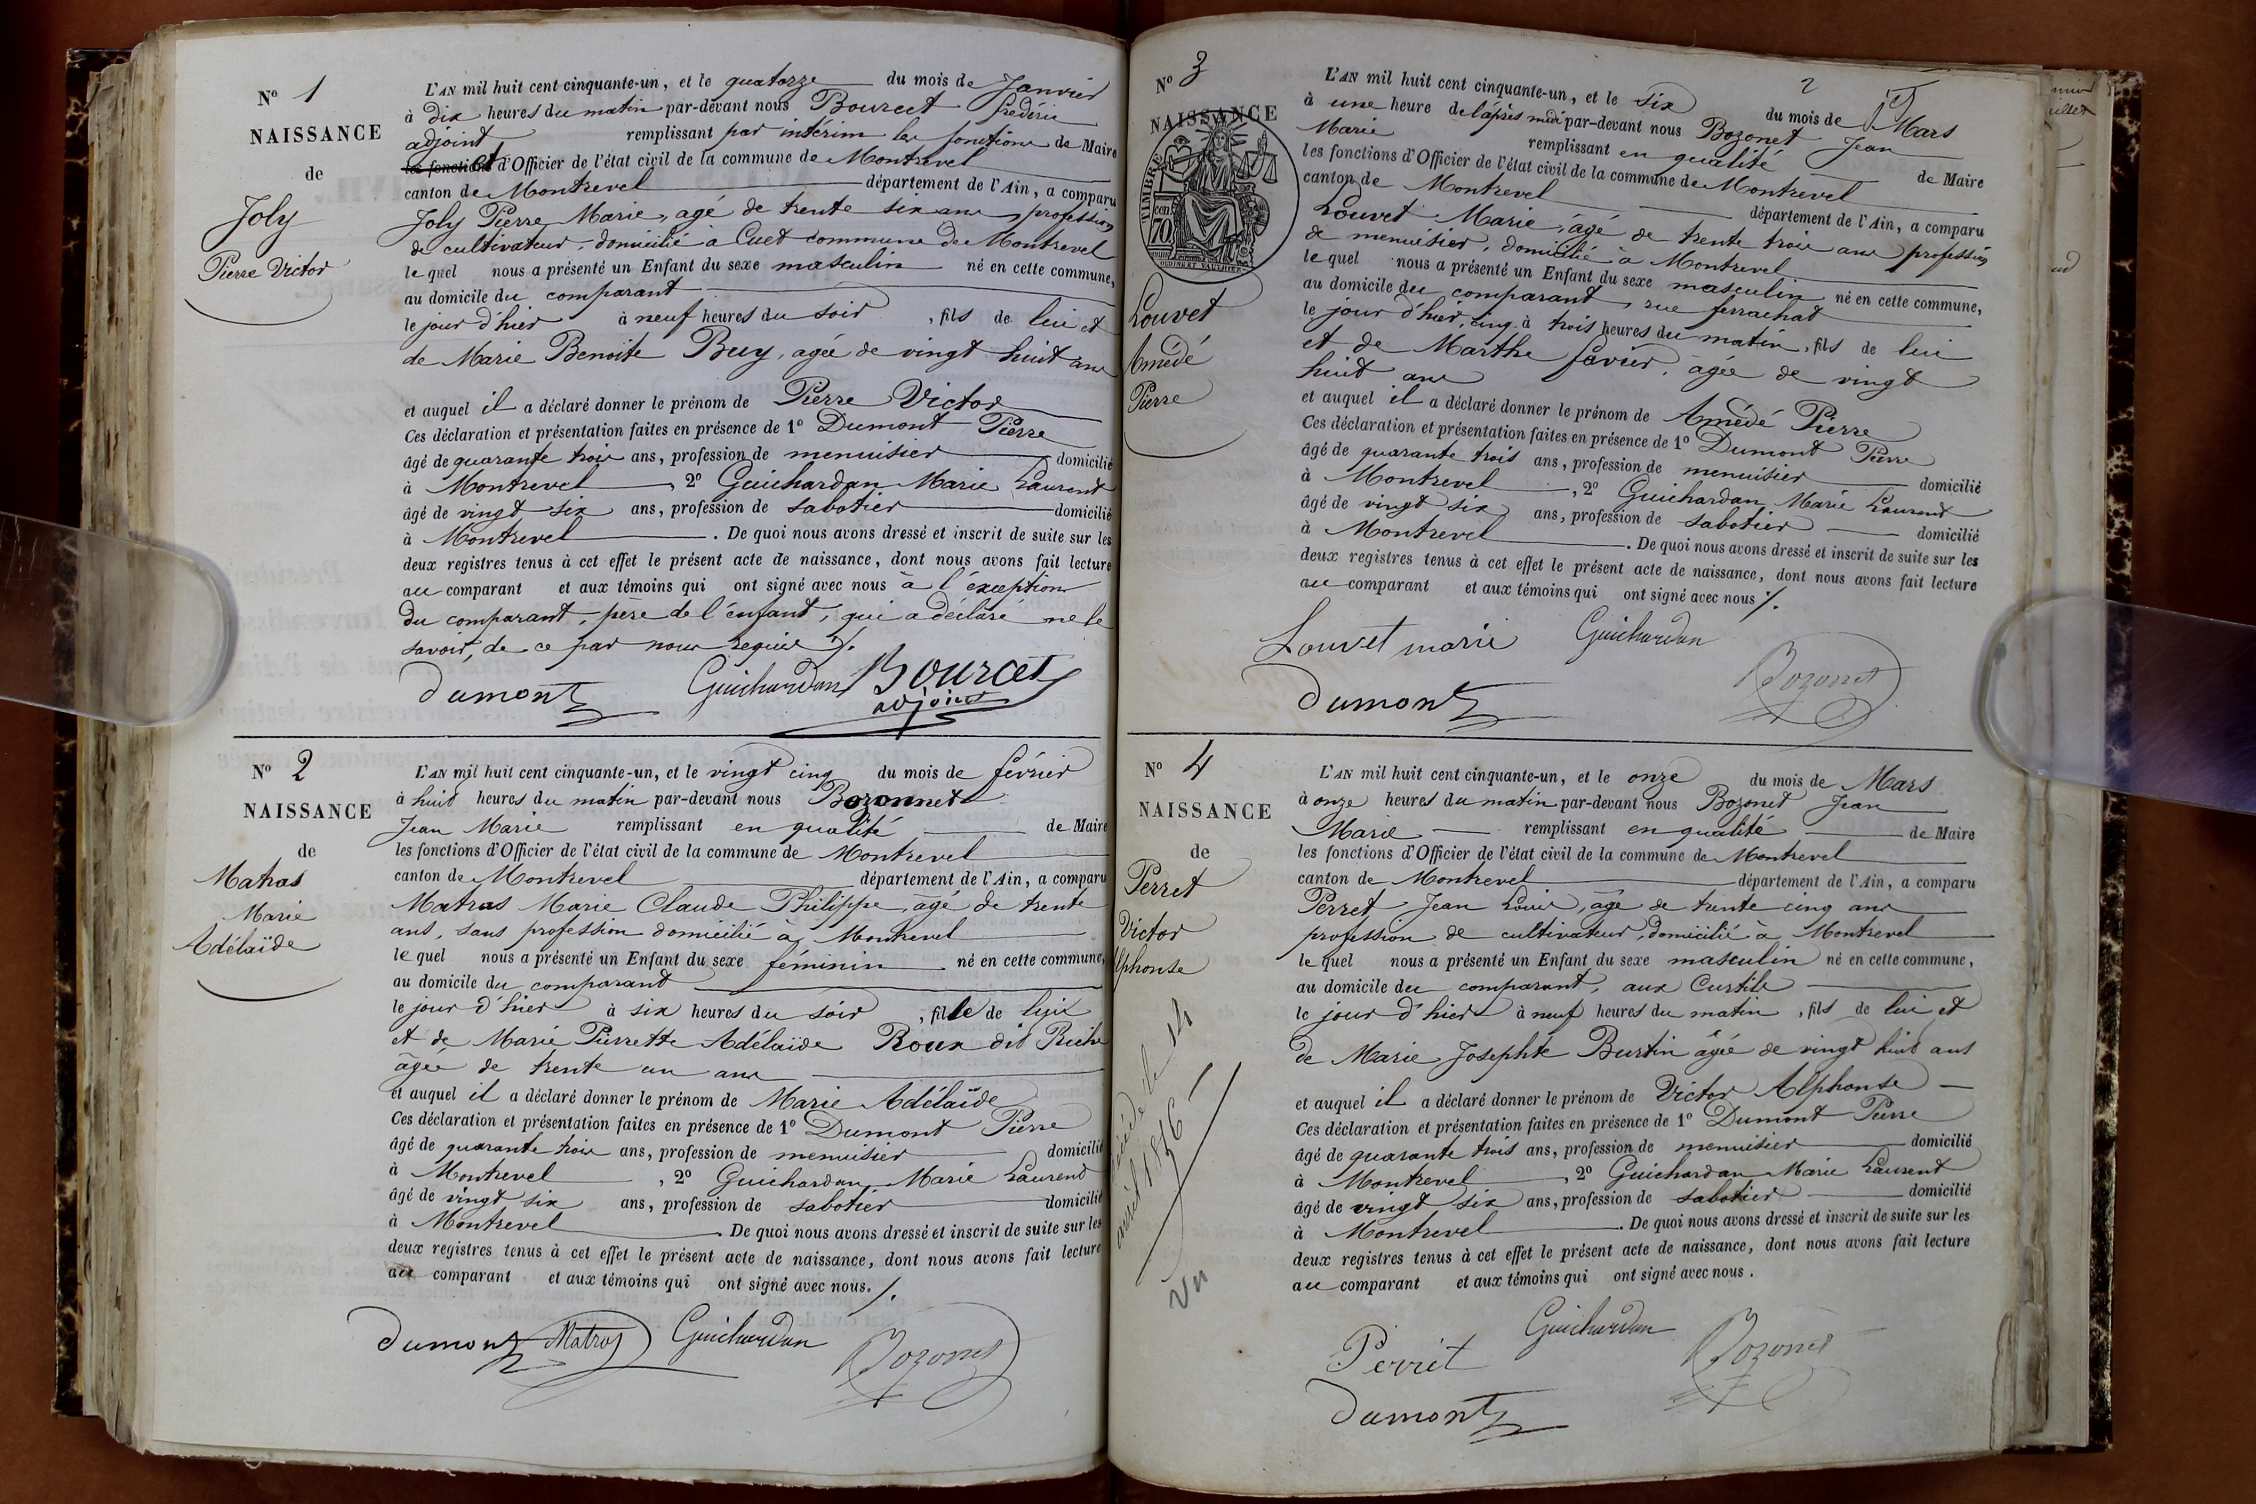 N° 1
NAISSANCE
de
Joly
Pierre Victor
L'AN mil huit cent cinquante-un, et le quatorze du mois de Janvier
à dix heures du matin par-devant nous Bourcet frédéric
adjoint remplissant par intérim les fonctions de Maire
les fonctions et d'Officier de l'état civil de la commune de Montrevel
canton de Montrevel département de l'Ain, a comparu
Joly Pierre Marie, agé de trente six ans, profession
de cultivateur, domicilié à Cuet commune de Montrevel
le quel nous a présenté un Enfant du sexe masculin né en cette commune,
au domicile du comparant
le jour d'hier à neuf heures du soir, fils de lui et
de Marie Benoite Buy, agée de vingt huit ans
et auquel il a déclaré donner le prénom de Pierre Victor
Ces déclaration et présentation faites en présence de 1° Dumont Pierre
âgé de quarante trois ans, profession de menuisier domicilié
à Montrevel, 2° Guichardan Marie Laurent
âgé de vingt six ans, profession de sabotier domicilié
à Montrevel. De quoi nous avons dressé et inscrit de suite sur les
deux registres tenus à cet effet le présent acte de naissance, dont nous avons fait lecture
au comparant et aux témoins qui ont signé avec nous à l'éxception
du comparant, père de l'enfant, qui a déclaré ne le
savoir, de ce par nous requis ./.
Dumont Guichardan Bourcet
adjoint
N° 2
NAISSANCE
de
Matras
Marie
Adélaïde
L'AN mil huit cent cinquante-un, et le vingt cinq du mois de février
à huit heures du matin par-devant nous Bozonnet
Jean Marie remplissant en qualité de Maire
les fonctions d'Officier de l'état civil de la commune de Montrevel
canton de Montrevel département de l'Ain, a comparu
Matras Marie Claude Philippe, agé de trente
ans, sans profession domicilié à Montrevel
le quel nous a présenté un Enfant du sexe féminin né en cette commune,
au domicile du comparant
le jour d'hier à six heures du soir, fille de lui
et de Marie Pierrette Adélaïde Roux dit Riche
âgée de trente un ans
et auquel il a déclaré donner le prénom de Marie Adélaïde
Ces déclaration et présentation faites en présence de 1° Dumont Pierre
âgé de quarante trois ans, profession de menuisier domicilié
à Montrevel, 2° Guichardan Marie Laurent
âgé de vingt six ans, profession de sabotier domicilié
à Montrevel. De quoi nous avons dressé et inscrit de suite sur les
deux registres tenus à cet effet le présent acte de naissance, dont nous avons fait lecture
au comparant et aux témoins qui ont signé avec nous. /.
Dumont Matras Guichardan Bozonet
2
N° 3
NAISSANCE
TIMBRE
cen.
70
Louvet
Amédé
Pierre
L'AN mil huit cent cinquante-un, et le six du mois de Mars
à une heure de l'après midi par-devant nous Bozonet Jean
Marie remplissant en qualité de Maire
les fonctions d'Officier de l'état civil de la commune de Montrevel
canton de Montrevel département de l'Ain, a comparu
Louvet Marie, âgé de trente trois ans profession
de menuisier, domicilié à Montrevel
le quel nous a présenté un Enfant du sexe masculin né en cette commune,
au domicile du comparant, rue ferrachat
le jour d'hier, cinq à trois heures du matin, fils de lui
et de Marthe favier, agée de vingt
huit ans
et auquel il a déclaré donner le prénom de Amédé Pierre
Ces déclaration et présentation faites en présence de 1° Dumont Pierre
âgé de quarante trois ans, profession de menuisier domicilié
à Montrevel, 2° Guichardan Marie Laurent
âgé de vingt six ans, profession de sabotier domicilié
à Montrevel. De quoi nous avons dressé et inscrit de suite sur les
deux registres tenus à cet effet le présent acte de naissance, dont nous avons fait lecture
au comparant et aux témoins qui ont signé avec nous ./.
Louvet marie Guichardan
Dumont Bozonet
N° 4
NAISSANCE
de
Perret
Victor
Alphonse
14
avril 1876
Vu
L'AN mil huit cent cinquante-un, et le onze du mois de Mars
à onze heures du matin par-devant nous Bozonet Jean
Marie remplissant en qualité de Maire
les fonctions d'Officier de l'état civil de la commune de Montrevel
canton de Montrevel département de l'Ain, a comparu
Perret Jean Louis, âgé de trente cinq ans
profession de cultivateur, domicilié à Montrevel
le quel nous a présenté un Enfant du sexe masculin né en cette commune,
au domicile du comparant, aux Curtils
le jour d'hier à neuf heures du matin, fils de lui et
de Marie Josephte Burtin âgée de vingt huit ans
et auquel il a déclaré donner le prénom de Victor Alphonse
Ces déclaration et présentation faites en présence de 1° Dumont Pierre
âgé de quarante trois ans, profession de menuisier domicilié
à Montrevel, 2° Guichardan Marie Laurent
âgé de vingt six ans, profession de sabotier domicilié
à Montrevel. De quoi nous avons dressé et inscrit de suite sur les
deux registres tenus à cet effet le présent acte de naissance, dont nous avons fait lecture
au comparant et aux témoins qui ont signé avec nous.
Guichardan
Perret Bozonet
Dumont